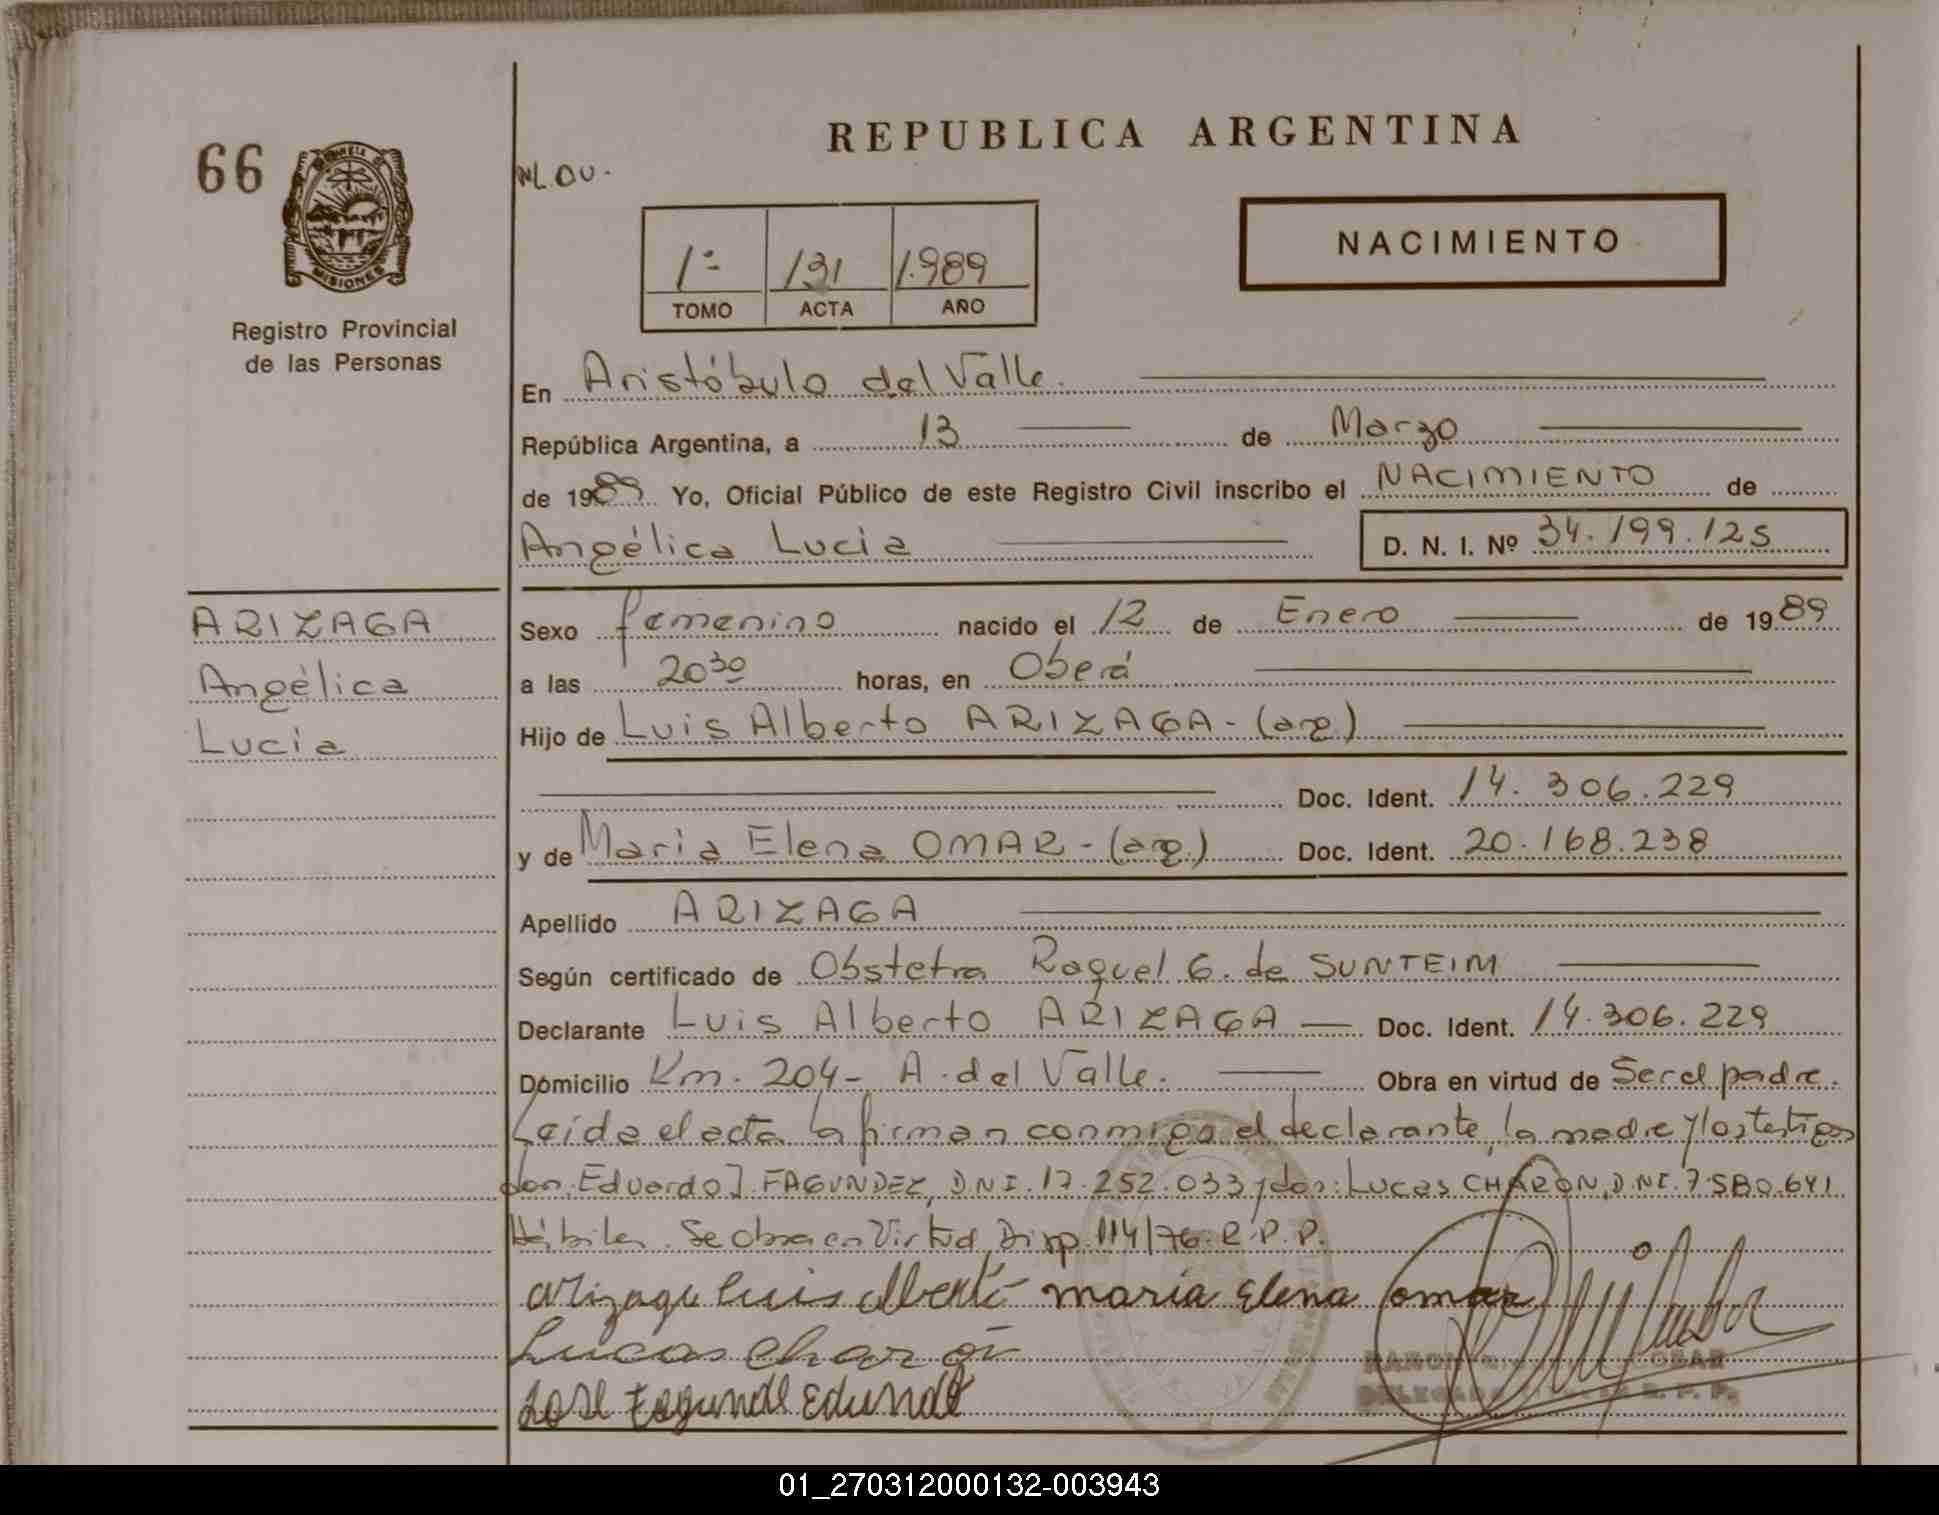 REPUBLICA ARGENTINA
66
MISIONES
Registro Provincial
de las Personas
NACIMIENTO
1º 131 1.989
TOMO ACTA AÑO
En Aristóbulo del Valle.
República Argentina, a 13 de Marzo
de 1989 Yo, Oficial Público de este Registro Civil inscribo el NACIMIENTO de
Angélica Lucia D. N. I. Nº 34.199.125
ARIZAGA
Angélica
Lucia
Sexo femenino nacido el 12 de Enero de 1989
a las 20³⁰ horas, en Oberá
Hijo de Luis Alberto ARIZAGA - (arg.)
Doc. Ident. 14.306.229
y de Maria Elena OMAR - (arg.) Doc. Ident. 20.168.238
Apellido ARIZAGA
Según certificado de Obstetra Raquel G. de SUNTEIM
Declarante Luis Alberto ARIZAGA Doc. Ident. 14.306.229
Domicilio Km. 204 - A. del Valle. Obra en virtud de Ser el padre.
Leída el acta la firman conmigo el declarante, la madre y los testigos
don: Eduardo J. FAGUNDEZ, D.N.I. 17.252.033 y don: Lucas CHARON, D.N.I. 7.580.641
Hábiles. Se obra en Virtud Disp. 114/76. R.P.P.
arizaga luis alberto maria Elena omar
Lucas Charon
José Fagunde Eduardo
01_270312000132-003943